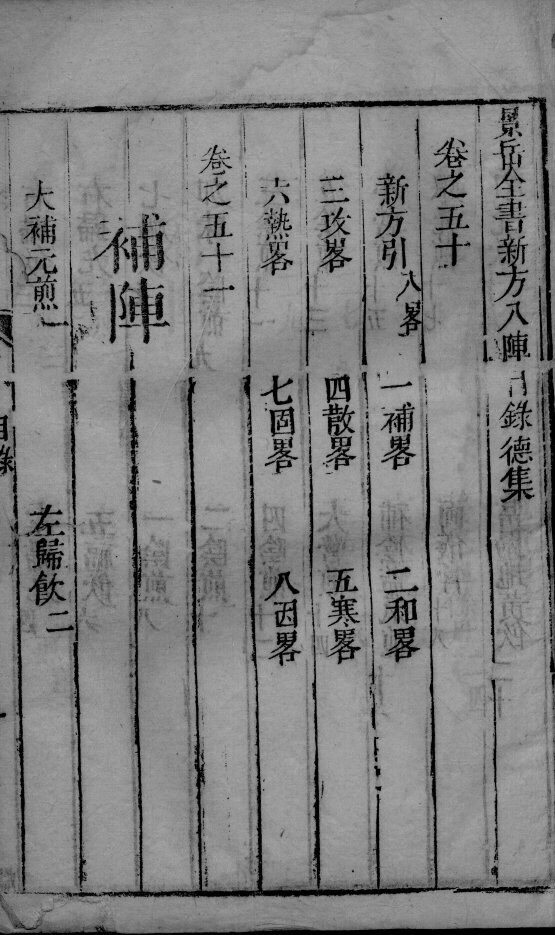 景岳全書新方八陣目錄德集
卷之五十
新方引八畧 一補畧 二和畧
三攻畧 四散畧 五寒畧
六熱畧 七固畧 八因畧
卷之五十一
補陣
大補元煎一 左歸飲二
目錄